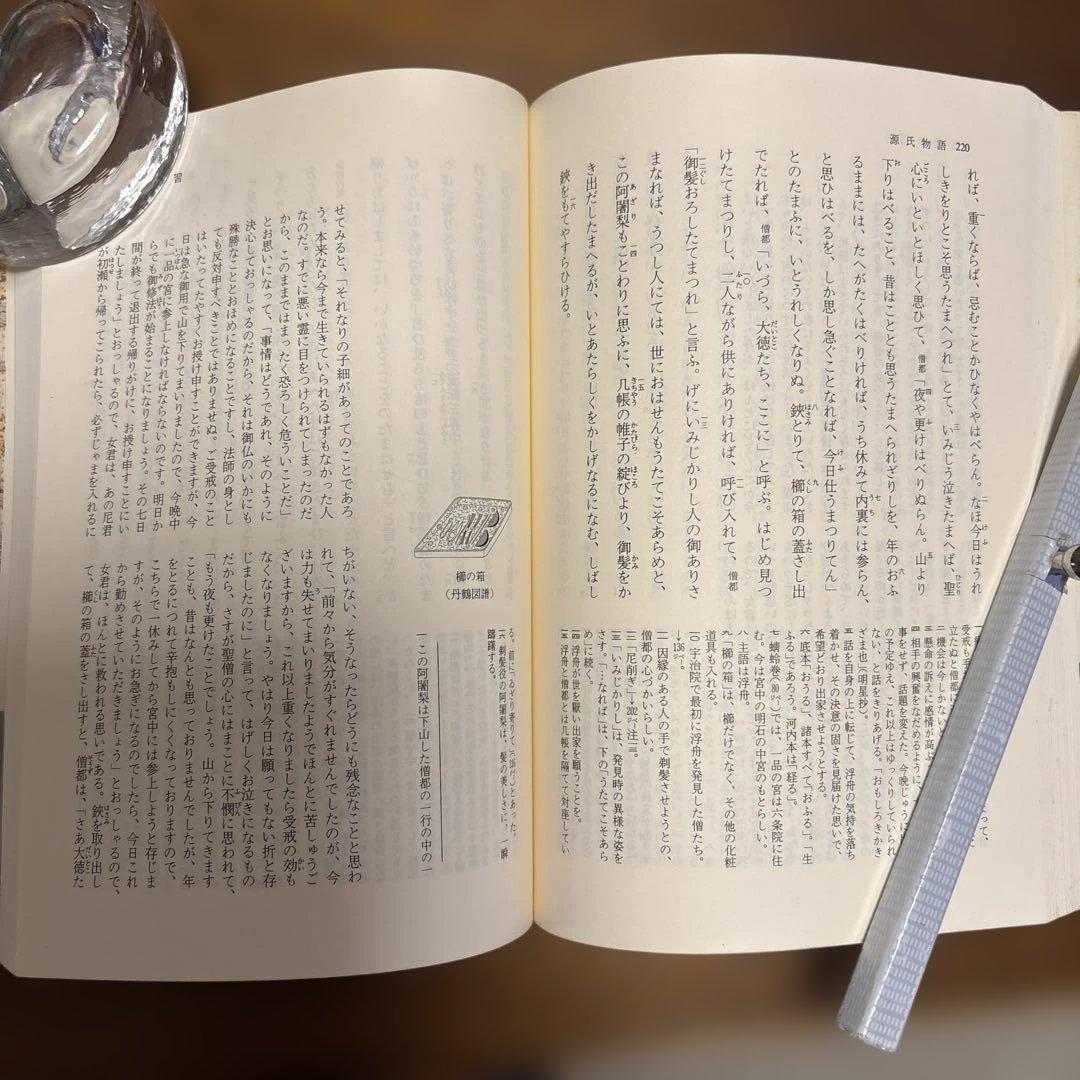 源氏物語 220
れば、重くならば、忌むことかひなくやはべらん。なほ今日はうれ
しきをりとこそ思うたまへつれ」とて、いみじう泣きたまへば、聖
心にいといとほしく思ひて、僧都「夜や更けはべりぬらん。山より
下りはべること、昔はことともえ思うたまへられざりしを、年のおふ
るままには、たへがたくはべりければ、うち休みて内裏には参らん、
と思ひはべるを、しか思し急ぐことなれば、今日仕うまつりてん」
とのたまふに、いとうれしくなりぬ。鋏とりて、櫛の箱の蓋さし出
でたれば、僧都「いづら、大徳たち、ここに」と呼ぶ。はじめ見つ
けたてまつりし、二人ながら供にありければ、呼び入れて、僧都
「御髪おろしたてまつれ」と言ふ。げにいみじかりし人の御ありさ
まなれば、うつし人にては、世におはせんもうたてこそあらめと、
この阿闍梨もことわりに思ふに、几帳の帷子の綻びより、御髪をか
き出だしたまへるが、いとあたらしくをかしげなるになむ、しばし
鋏をもてやすらひける。
立たぬと僧都
二 機会は今しかない
三 懸命の訴えに感情が高ぶ
四 相手の興奮をなだめるように、
事をせず、話題を変えた。今晩じゅうに
の予定ゆえ、これ以上はゆっくりしていられ
ない、と話をきりあげる。「おもしろきかき
ざま也」（明星抄）。
五 話を自身の上に転じて、浮舟の気持を落ち
着かせ、その決意の固さを見届けた思いで、
希望どおり出家させようとする。
六 底本「おうる」、諸本すべて「おふる」。「生
ふる」であろう。河内本は「経る」。
七 蜻蛉巻（80㌻）では、一品の宮は六条院に住
む。今は宮中の明石の中宮のもとらしい。
八 主語は浮舟。
九 「櫛の箱」は、櫛だけでなく、その他の化粧
道具も入れる。
一〇 宇治院で最初に浮舟を発見した僧たち。
↓136㌻。
一一 因縁のある人の手で剃髪させようとの、
僧都の心づかいらしい。
一二 「尼削ぎ」↓202㌻注一三。
一三 「いみじかりし」は、発見時の異様な姿を
さす。「…なれば」は、下の「うたてこそあら
め」に続く。
一四 浮舟が世を厭い出家を願うことを。
一五 浮舟と僧都とは几帳を隔てて対座してい
る。前に「ゐざり寄りて」とあった。
一六 剃髪役の阿闍梨は、髪の美しさに、一瞬
躊躇する。
一 この阿闍梨は下山した僧都の一行の中の一
習
せてみると、「それなりの子細があってのことであろ
う。本来なら今まで生きていられるはずもなかった人
なのだ。すでに悪い霊に目をつけられてしまったのだ
から、このままではまったく恐ろしく危ういことだ」
とお思いになって、「事情はどうであれ、そのように
決心しておっしゃるのだから、それは御仏のいかにも
殊勝なこととおほめになることです。法師の身とし
ても反対申すべきことではありませぬ。ご受戒のこと
はいたってたやすくお授け申すことができますが、今
日は急な御用で山を下りてまいりましたので、今晩中
に一品の宮に参上しなければならないのです。明日か
らでも御修法が始まることになりましょう。その七日
間が終って退出する帰りがけに、お授け申すことにい
たしましょう」とおっしゃるので、女君は、あの尼君
が初瀬から帰ってこられたら、必ずじゃまを入れるに
櫛の箱
（丹鶴図譜）
ちがいない、そうなったらどうにも残念なことと思わ
れて、「前々から気分がすぐれませんでしたのが、今
は力も失せてまいりましたようでほんとに苦しゅうご
ざいますから、これ以上重くなりましたら受戒の効も
なくなりましょう。やはり今日は願ってもない折と存
じましたのに」と言って、はげしくお泣きになるもの
だから、さすが聖僧の心にはまことに不憫に思われて、
「もう夜も更けたことでしょう。山から下りてきます
ことも、昔はなんとも思っておりませんでしたが、年
をとるにつれて辛抱もしにくくなっておりますので、
こちらで一休みしてから宮中には参上しようと存じま
すが、そのようにお急ぎになるのでしたら、今日これ
から勤めさせていただきましょう」とおっしゃるので、
女君は、ほんとに救われる思いである。鋏を取り出し
て、櫛の箱の蓋をさし出すと、僧都は、「さあ大徳た